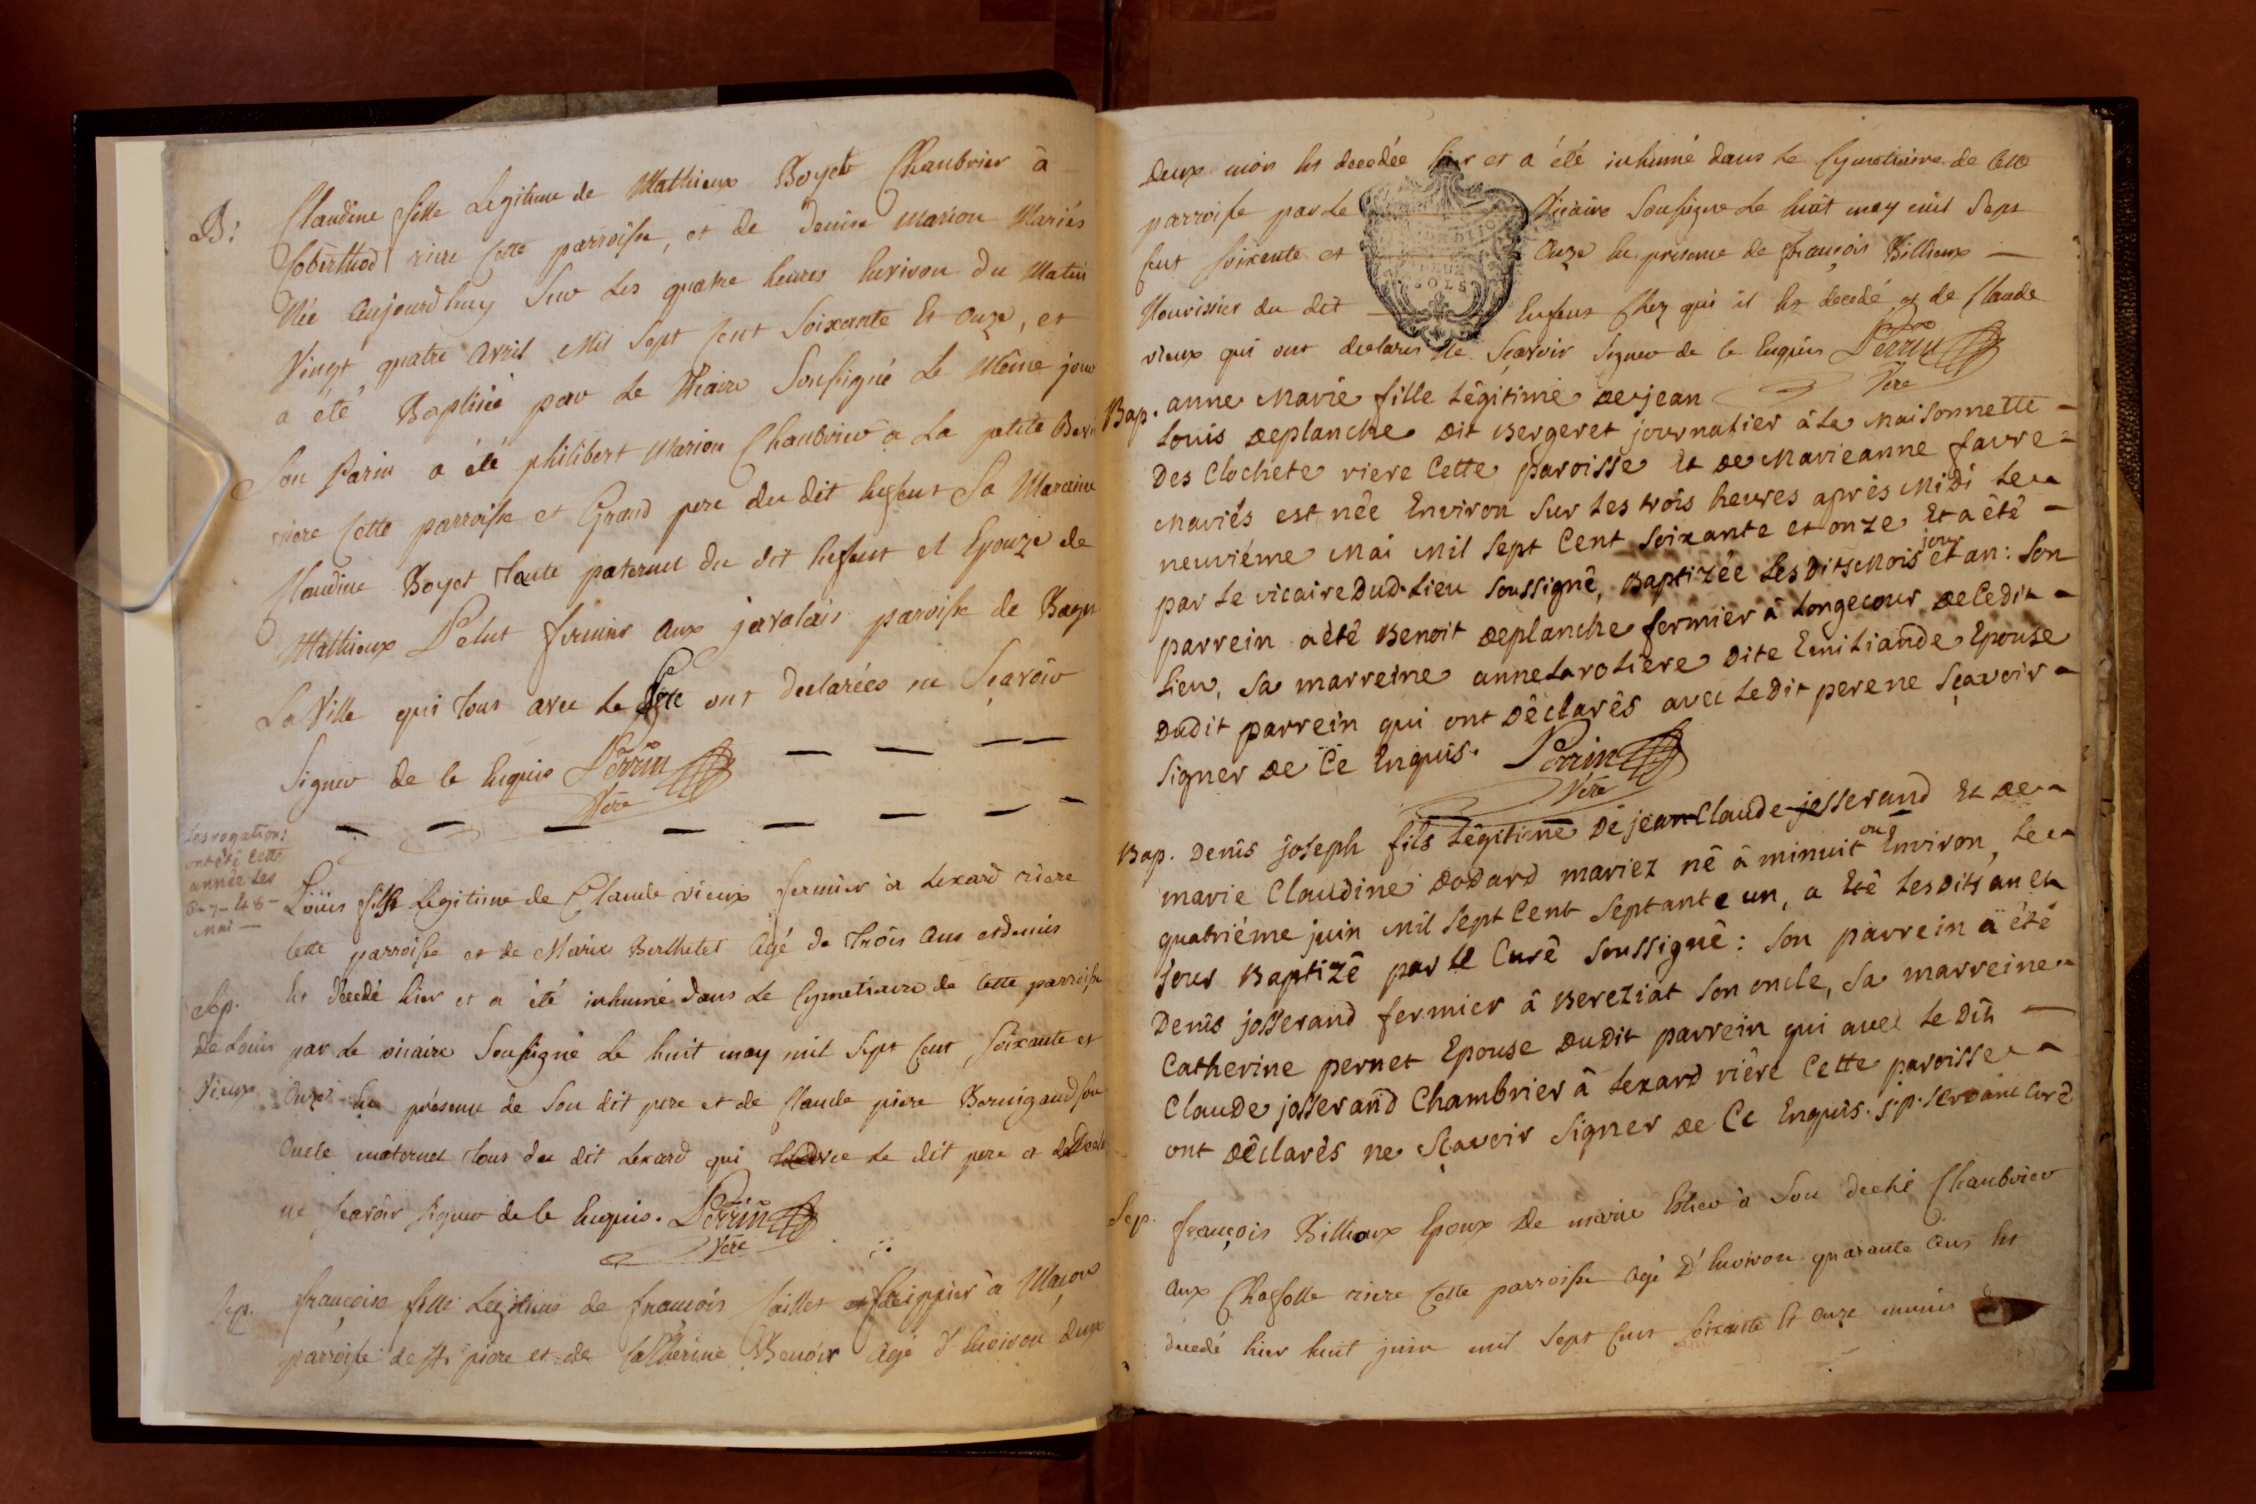 B:
Claudine fille Legitime de Mathieux Boyet Chanbrier à
Coberthod riere Cette parroisse, et de Denise Marion Mariés
Née aujourdhuy Sur Les quatre heures Environ du Matin
Vingt quatre avril Mil Sept Cent Soixante Et Onze, et
a été Baptisée par Le Vicaire Soussigné Le Même jour
Son Parin a été philibert Marion Chanbrier a La petite
riere Cette parroisse et Grand pere du dit Enfent Sa Maraine
Claudine Boyet Tante paternel du dit Enfent et Epouze de
Mathieux Pelut fermier aux javalais paroisse de Bagé
La Ville qui Tous avec Le Père ont declarées ne Sçavoir
Signer de Ce Enquis Perrin
Vere
Les rogations
ont été Cette
année Les
6-7- et 8-
Mai —
Loüis fils Legitime de Claude vieux fermier à Lexard riere
Cette parroisse et de Marie Berthelet agé de Trois ans et demis
Est décedé hier et a été inhumé dans Le Cymetiere de Cette parroisse
Sep.
De Louis
Vieux
par Le vicaire Soussigné Le huit may mil Sept Cent Soixante et
Onze En présence de Son dit pere et de Claude piere Bernigaud Son
Oncle maternel Tous du dit Lexard qui avec Le dit pere a
ne Scavoir signer de Ce Enquis. Perrin
Vere
Sep.
françoise fille Legitime de françois Caillet frippier à Macon
parroisse de St. piere et de Catherine Benoir agé d'Environ deux
Deux mois Est decedée hier et a été inhumé dans Le Cymetiaire de Cette
parroisse par Le Vicaire Soussigné Le huit may mil Sept
Cent Soixante et Onze En presence de François Billioux —
Nourissier du dit Enfent Chez qui il Est decedé et de Claude
vieux qui ont declarés Ne Scavoir Signer de Ce Enquis Perrin
Vere
Bap. anne Marie fille Légitime de jean
Louis Deplanche Dit Bergeret journalier à La Maisonnette
Des Clochete riere Cette paroisse Et De Marieanne favre
Mariés est née Environ Sur Les trois heures après Midi Le
neuviéme Mai Mil Sept Cent Soixante et onze Et a été
jour
par Le vicaire Dud. Lieu Soussigné, Baptizée Lesdits Mois et an: Son
parrein a été Benoit Deplanche fermier à Longecour De Cedit
Lieu, Sa marreine anne Larotiere Dite Emiliande Epouse
Dudit parrein qui ont Déclarés avec Ledit pere ne Sçavoir
Signer De Ce Enquis. Perrin
Vere
Bap. Denis joseph fils Légitime De jean Claude josserand Et De
ou
marie Claudine Dodard mariez né à minuit Environ, Le
quatriéme juin Mil Sept Cent Septante un, a Eté Lesdits an et
jour Baptizé par Le Curé Soussigné: Son parrein a été
Denis josserand fermier à Bereziat Son oncle, Sa marreine
Catherine pernet Epouse Dudit parrein qui avec Le Dit
Claude josserand Chambrier à Lexard riére Cette paroisse
ont Déclarés ne Sçavoir Signer De Ce Enquis. j.p. Servant Curé
Sep.
françois Billioux Epoux De marie à Son deché Chanbrier
aux Chasolle riere Cette parroisse agé D'Environ quarante ans Est
decedé hier huit juin mil Sept Cent Soixante Et Onze munis